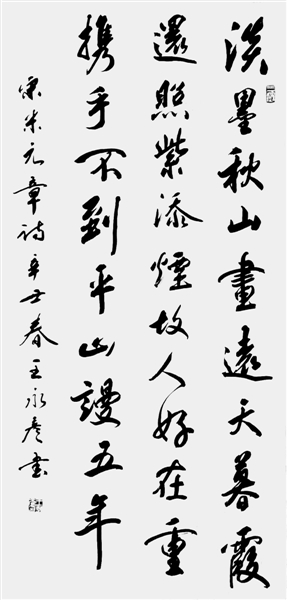 淡墨秋山畫遠天暮霞
還照紫添煙故人好在重
携手不到平山謾五年
宋米元章詩辛丑春王永彦書